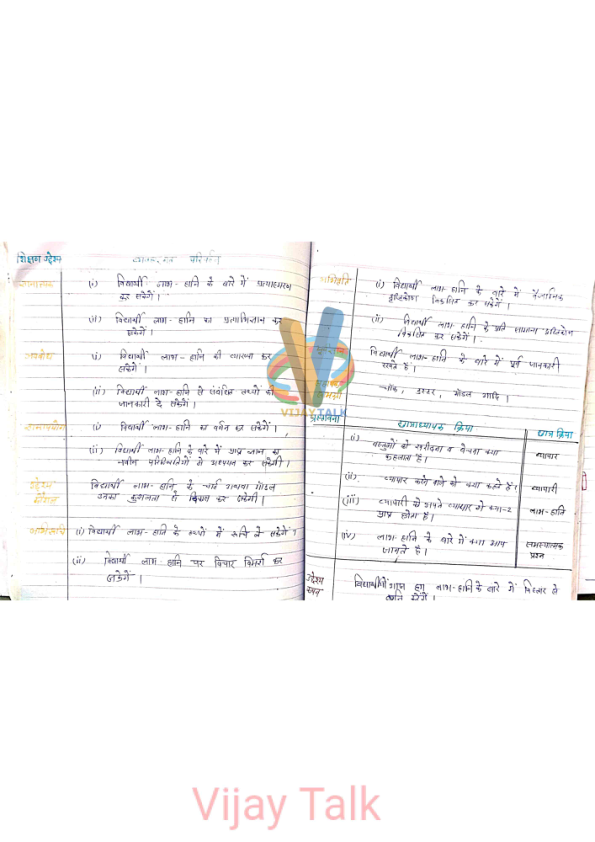 शिक्षण उद्देश्य व्यवहारगत परिवर्तन
ज्ञानात्मक (i) विद्यार्थी लाभ-हानि के बारे में प्रत्यास्मरण
कर सकेंगे।
(ii) विद्यार्थी लाभ-हानि का प्रत्याभिज्ञान कर
सकेंगे।
अवबोध (i) विद्यार्थी लाभ-हानि की व्याख्या कर
सकेंगे।
(ii) विद्यार्थी लाभ-हानि से संबंधित तथ्यों की
जानकारी दे सकेंगे।
ज्ञानोपयोग (i) विद्यार्थी लाभ-हानि का वर्णन कर सकेंगे।
(ii) विद्यार्थी लाभ-हानि के बारे में प्राप्त ज्ञान का
नवीन परिस्थितियों में अध्ययन कर सकेंगे।
कौशल विद्यार्थी लाभ-हानि के चार्ट अथवा मॉडल
उनका कुशलता से कर सकेंगे।
अभिरुचि (i) विद्यार्थी लाभ-हानि के तथ्यों में रूचि ले सकेंगे।
(ii) विद्यार्थी लाभ-हानि पर विचार विमर्श कर
सकेंगे।
अभिवृत्ति (i) विद्यार्थी लाभ-हानि के बारे में वैज्ञानिक
दृष्टिकोण विकसित कर सकेंगे।
(ii) विद्यार्थी लाभ-हानि के प्रति सामान्य दृष्टिकोण
विकसित कर सकेंगे।
विद्यार्थी लाभ-हानि के बारे में पूर्व जानकारी
रखते हैं।
चॉक, डस्टर, मॉडल आदि।
VIJAY TALK
प्रस्तावना छात्राध्यापक क्रिया छात्र क्रिया
(i) वस्तुओं को खरीदना व बेचना क्या
कहलाता है। व्यापार
(ii) व्यापार करने वाले को क्या कहते हैं। व्यापारी
(iii) व्यापारी को अपने व्यापार में क्या-2
प्राप्त होता है। लाभ-हानि
(iv) लाभ-हानि के बारे में क्या आप
जानते हैं। समस्यात्मक
प्रश्न
उद्देश्य कथन विद्यार्थियों आज हम लाभ-हानि के बारे में विस्तार से
Vijay Talk